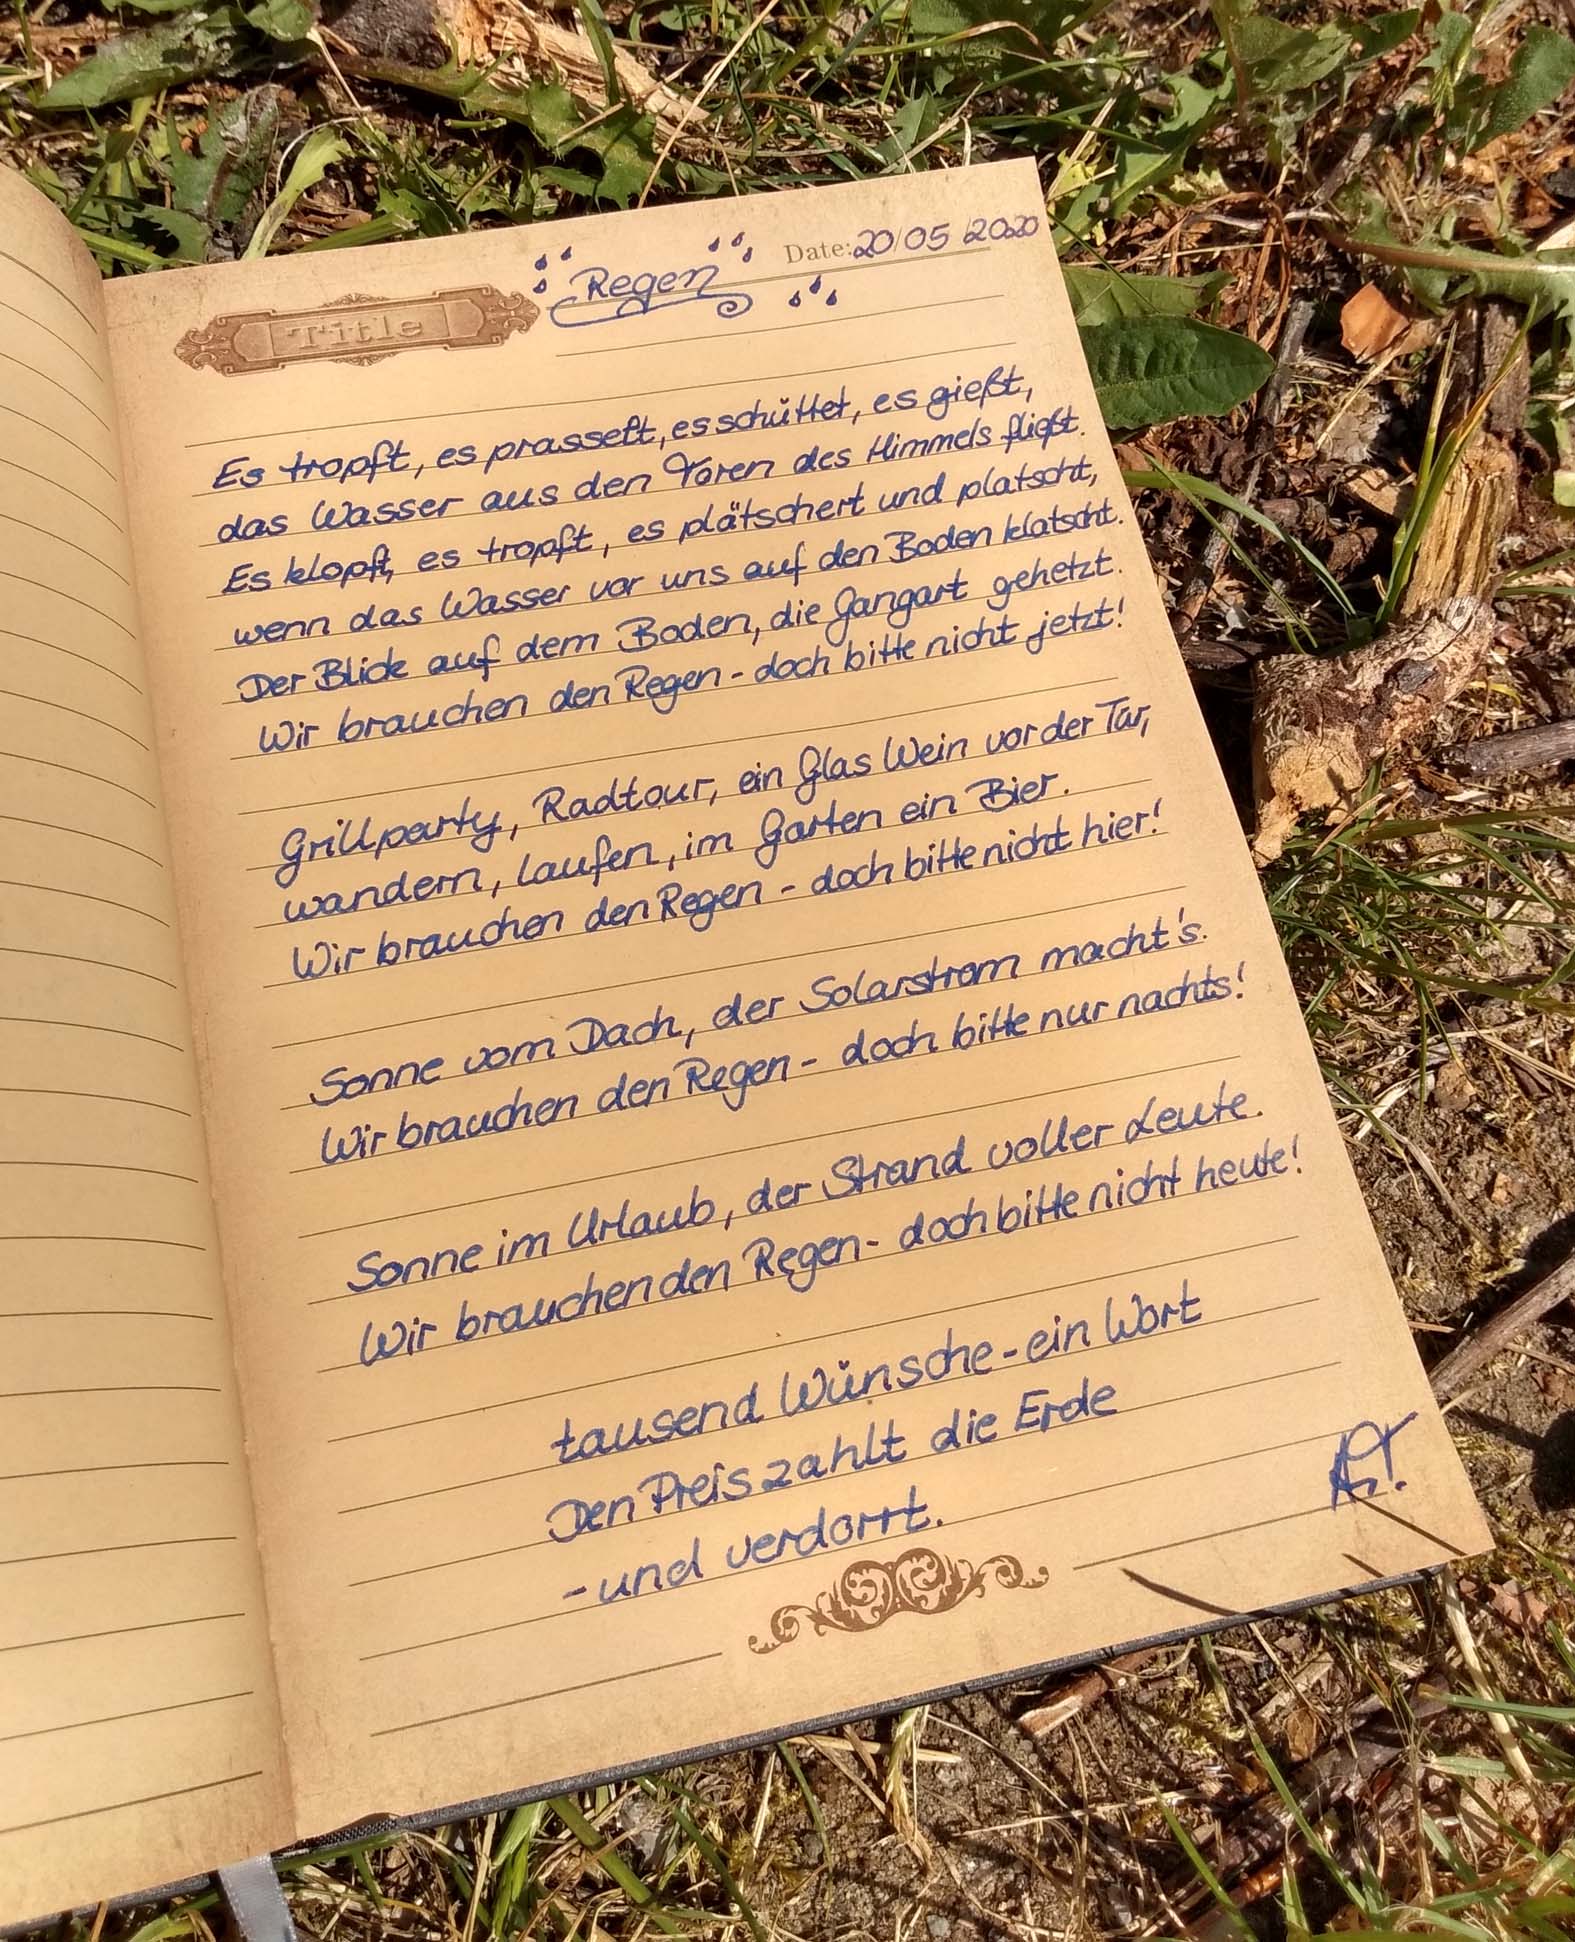 Title
Regen
Date: 20/05/2020
Es tropft, es prasselt, es schüttet, es gießt,
das Wasser aus den Toren des Himmels fließt.
Es klopft, es tropft, es plätschert und platscht,
wenn das Wasser vor uns auf den Boden klatscht.
Der Blick auf dem Boden, die Gangart gehetzt.
Wir brauchen den Regen - doch bitte nicht jetzt!
Grillparty, Radtour, ein Glas Wein vor der Tür,
wandern, laufen, im Garten ein Bier.
Wir brauchen den Regen - doch bitte nicht hier!
Sonne vom Dach, der Solarstrom macht's.
Wir brauchen den Regen - doch bitte nur nachts!
Sonne im Urlaub, der Strand voller Leute.
Wir brauchen den Regen - doch bitte nicht heute!
tausend Wünsche - ein Wort
Den Preis zahlt die Erde
- und verdorrt.